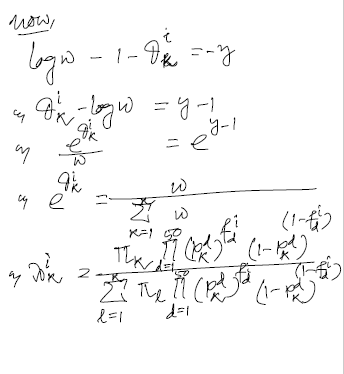 now,
log w - 1 - θ_k^i = -y
θ_k^i - log w = y - 1
e^{θ_k^i} / w = e^{y-1}
e^{θ_k^i} = w / ∑_{k=1}^{k} w
= π_k ∏_{d=1}^{50} (p_k^d)^{f_d^i} (1-p_k^d)^{(1-f_d^i)} / ∑_{l=1}^{k} π_l ∏_{d=1}^{50} (p_k^d)^{f_d^i} (1-p_k^d)^{(1-f_d^i)}